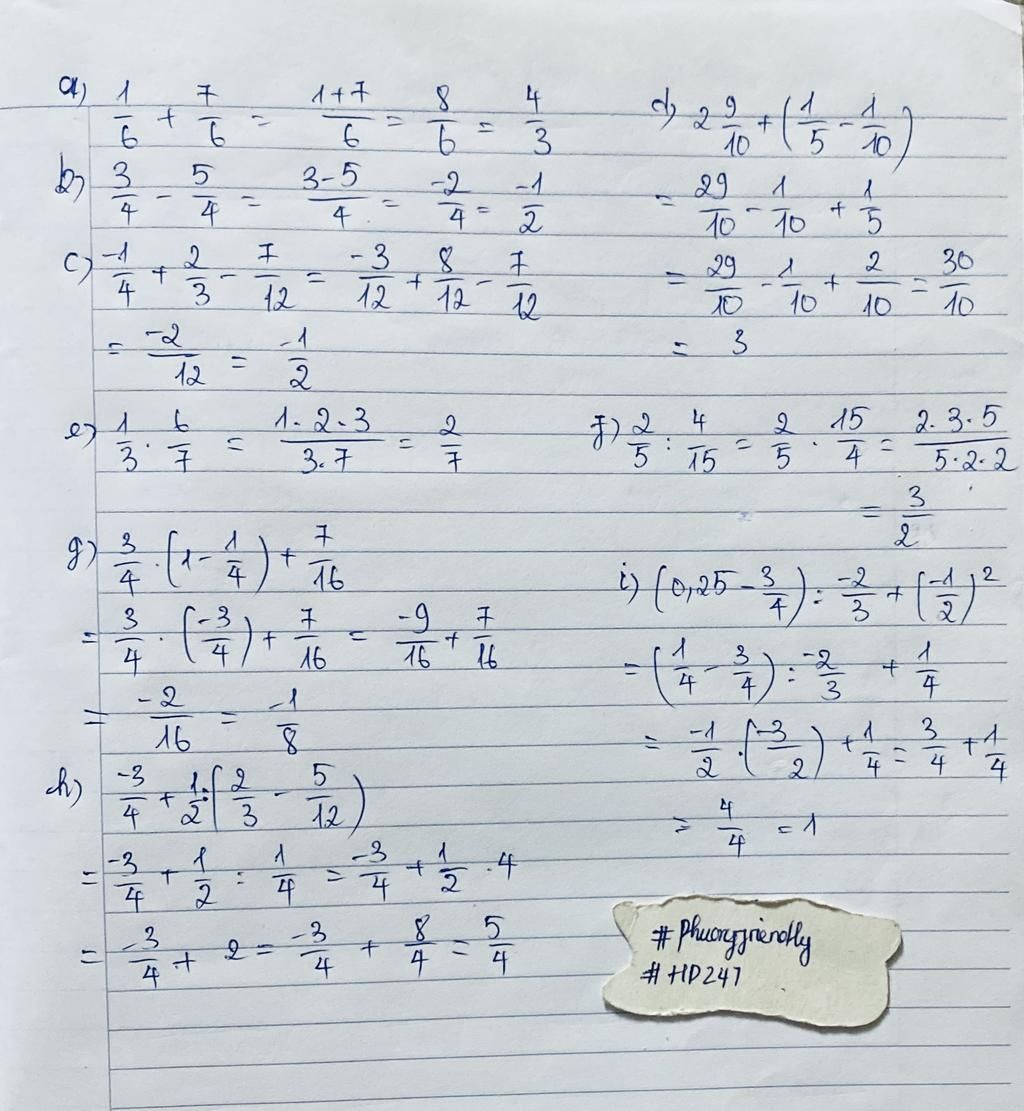 a) 1/6 + 7/6 = (1+7)/6 = 8/6 = 4/3
b) 3/4 - 5/4 = (3-5)/4 = -2/4 = -1/2
c) -1/4 + 2/3 - 7/12 = -3/12 + 8/12 - 7/12
= -2/12 = -1/2
d) 2 9/10 + (1/5 - 1/10)
= 29/10 - 1/10 + 1/5
= 29/10 - 1/10 + 2/10 = 30/10
= 3
e) 1/3 . 6/7 = (1.2.3)/(3.7) = 2/7
f) 2/5 : 4/15 = 2/5 . 15/4 = (2.3.5)/(5.2.2)
= 3/2
g) 3/4 . (1 - 1/4) + 7/16
= 3/4 . (-3/4) + 7/16 = -9/16 + 7/16
= -2/16 = -1/8
h) -3/4 + 1/2 : (2/3 - 5/12)
= -3/4 + 1/2 : 1/4 = -3/4 + 1/2 . 4
= -3/4 + 2 = -3/4 + 8/4 = 5/4
i) (0,25 - 3/4) : -2/3 + (-1/2)²
= (1/4 - 3/4) : -2/3 + 1/4
= -1/2 . (-3/2) + 1/4 = 3/4 + 1/4
= 4/4 = 1
# HD247